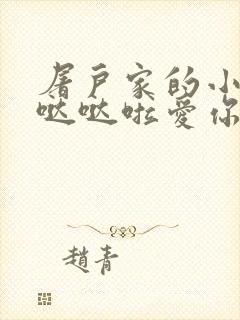 屠户家的小
哒哒啦爱你
趙青